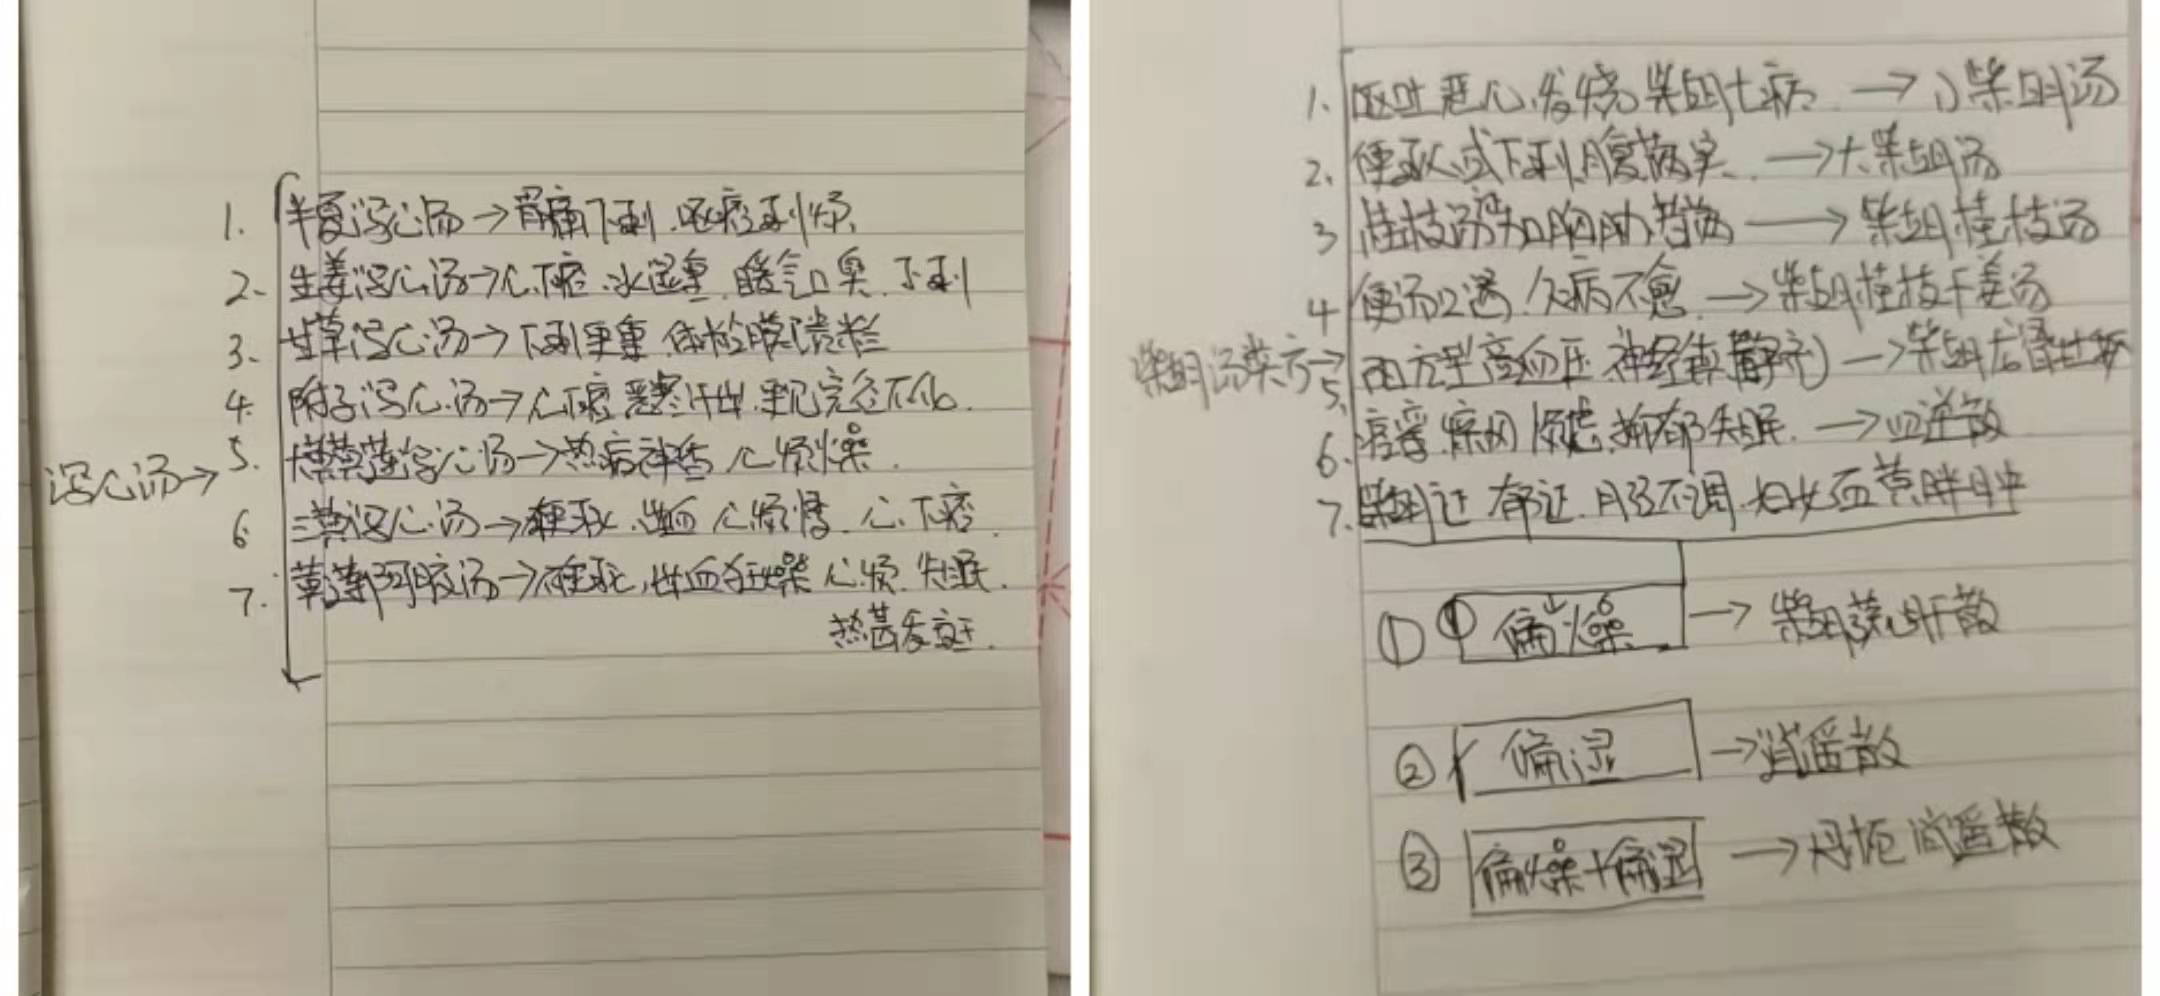 泻心汤→
1. 半夏泻心汤→胃痛下利.呕痞利烦.
2. 生姜泻心汤→心下痞.水逆重.嗳气口臭.下利
3. 甘草泻心汤→下利更重.
4. 附子泻心汤→心下痞.恶寒汗出.完谷不化.
5. 大黄黄连泻心汤→热病神昏 心烦燥.
6 三黄泻心汤→便秘.出血 心烦 心下痞.
7. 黄连阿胶汤→便秘,出血狂燥 心烦.失眠.
热甚发斑.
柴胡汤类方→
1. 呕吐恶心.发烧.柴胡七病.→小柴胡汤
2. 便秘或下利.腹满实.→大柴胡汤
3 桂枝汤加胸胁苦满→柴胡桂枝汤
4 便溏口渴.久病不愈.→柴胡桂枝干姜汤
5. 高血压.神经镇静剂→柴胡龙骨牡蛎
6. 焦虑.抑郁失眠.→四逆散
7. 柴胡证.郁证.月经不调.妇女面黄胖肿
① 偏燥→柴胡疏肝散
② 偏湿→逍遥散
③ 偏燥+偏湿→丹栀逍遥散